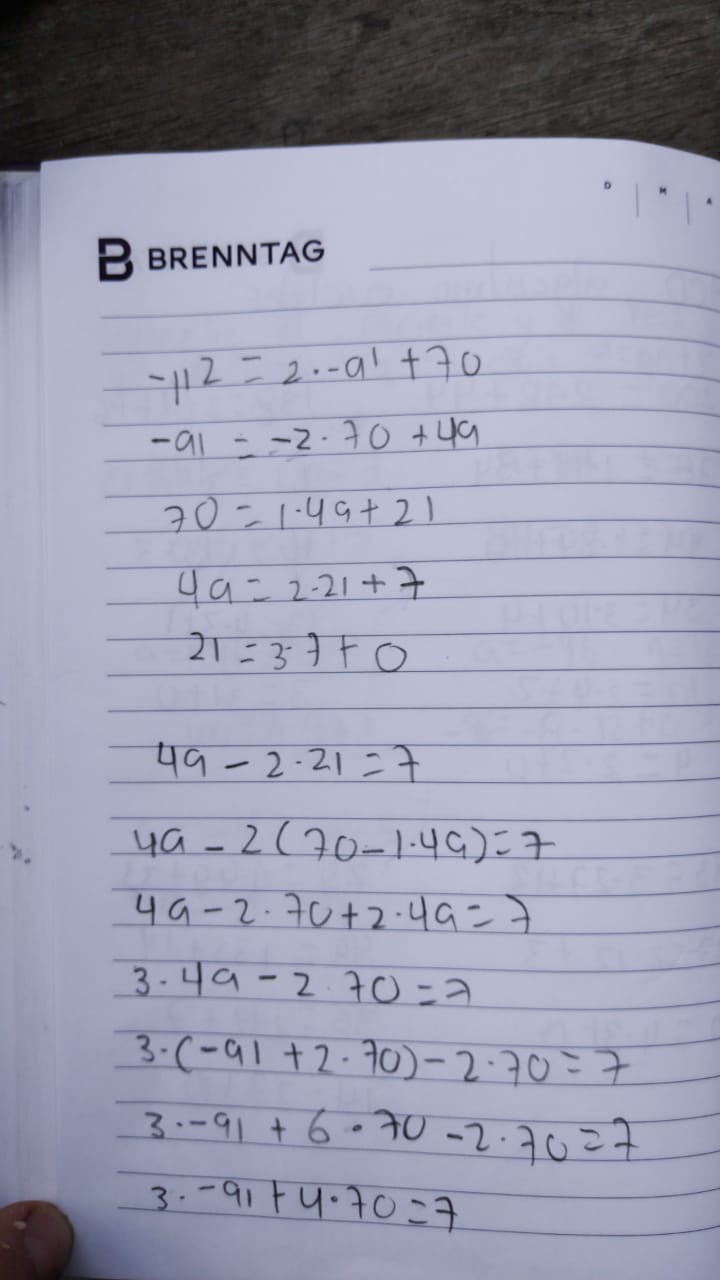 D M A
BRENNTAG
-112 = 2·-91 + 70
-91 = -2·70 + 49
70 = 1·49 + 21
49 = 2·21 + 7
21 = 3·7 + 0
49 - 2·21 = 7
49 - 2(70 - 1·49) = 7
49 - 2·70 + 2·49 = 7
3·49 - 2·70 = 7
3·(-91 + 2·70) - 2·70 = 7
3·-91 + 6·70 - 2·70 = 7
3·-91 + 4·70 = 7